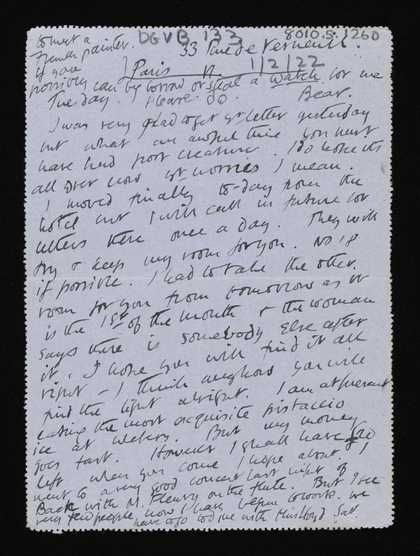 to meet a
French painter.
DGVB 133
8010.5.1260
33 Rue de Verneuil.
Paris
1/2/22
if you
possibly can buy borrow or steal a watch for me
Tuesday. please do Bear.
I was very glad to get yr letter yesterday
but what an awful time you must
have had poor creature. I do hope its
all over now yr worries I mean.
I moved finally to-day from the
hotel but I will call in future for
letters there once a day. They will
try & keep my room for you. No 18
if possible. I had to take the other
room for you from tomorrow as it
is the 1st of the month & the woman
says there is somebody else after
it. I hope you will find it all
right – I think anyhow you will
find the light alright. I am at present
eating the most exquisite pistaccio
ice at But my money
goes fast. However I shall have £20
left when you come I hope about. I
went to a very good concert last night of
Bach with M. Fleury on the flute. But I see
very few people now I have begun to work. We
have to go to dine with Miss Sat.